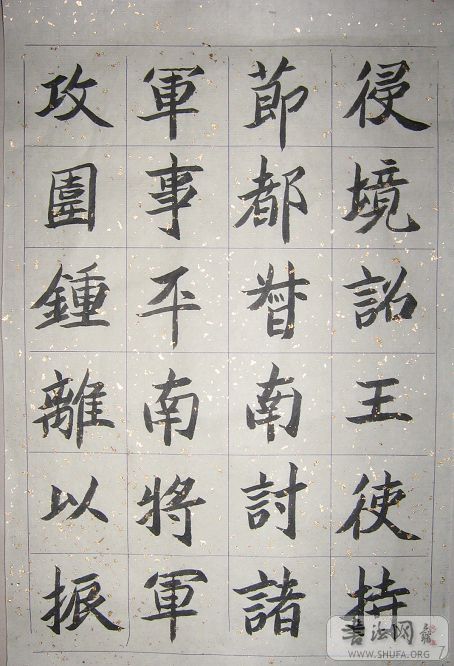 侵境詔王使持
節都督南討諸
軍事平南將軍
攻圍鍾離以振
书法网
WWW.SHUFA.ORG
7